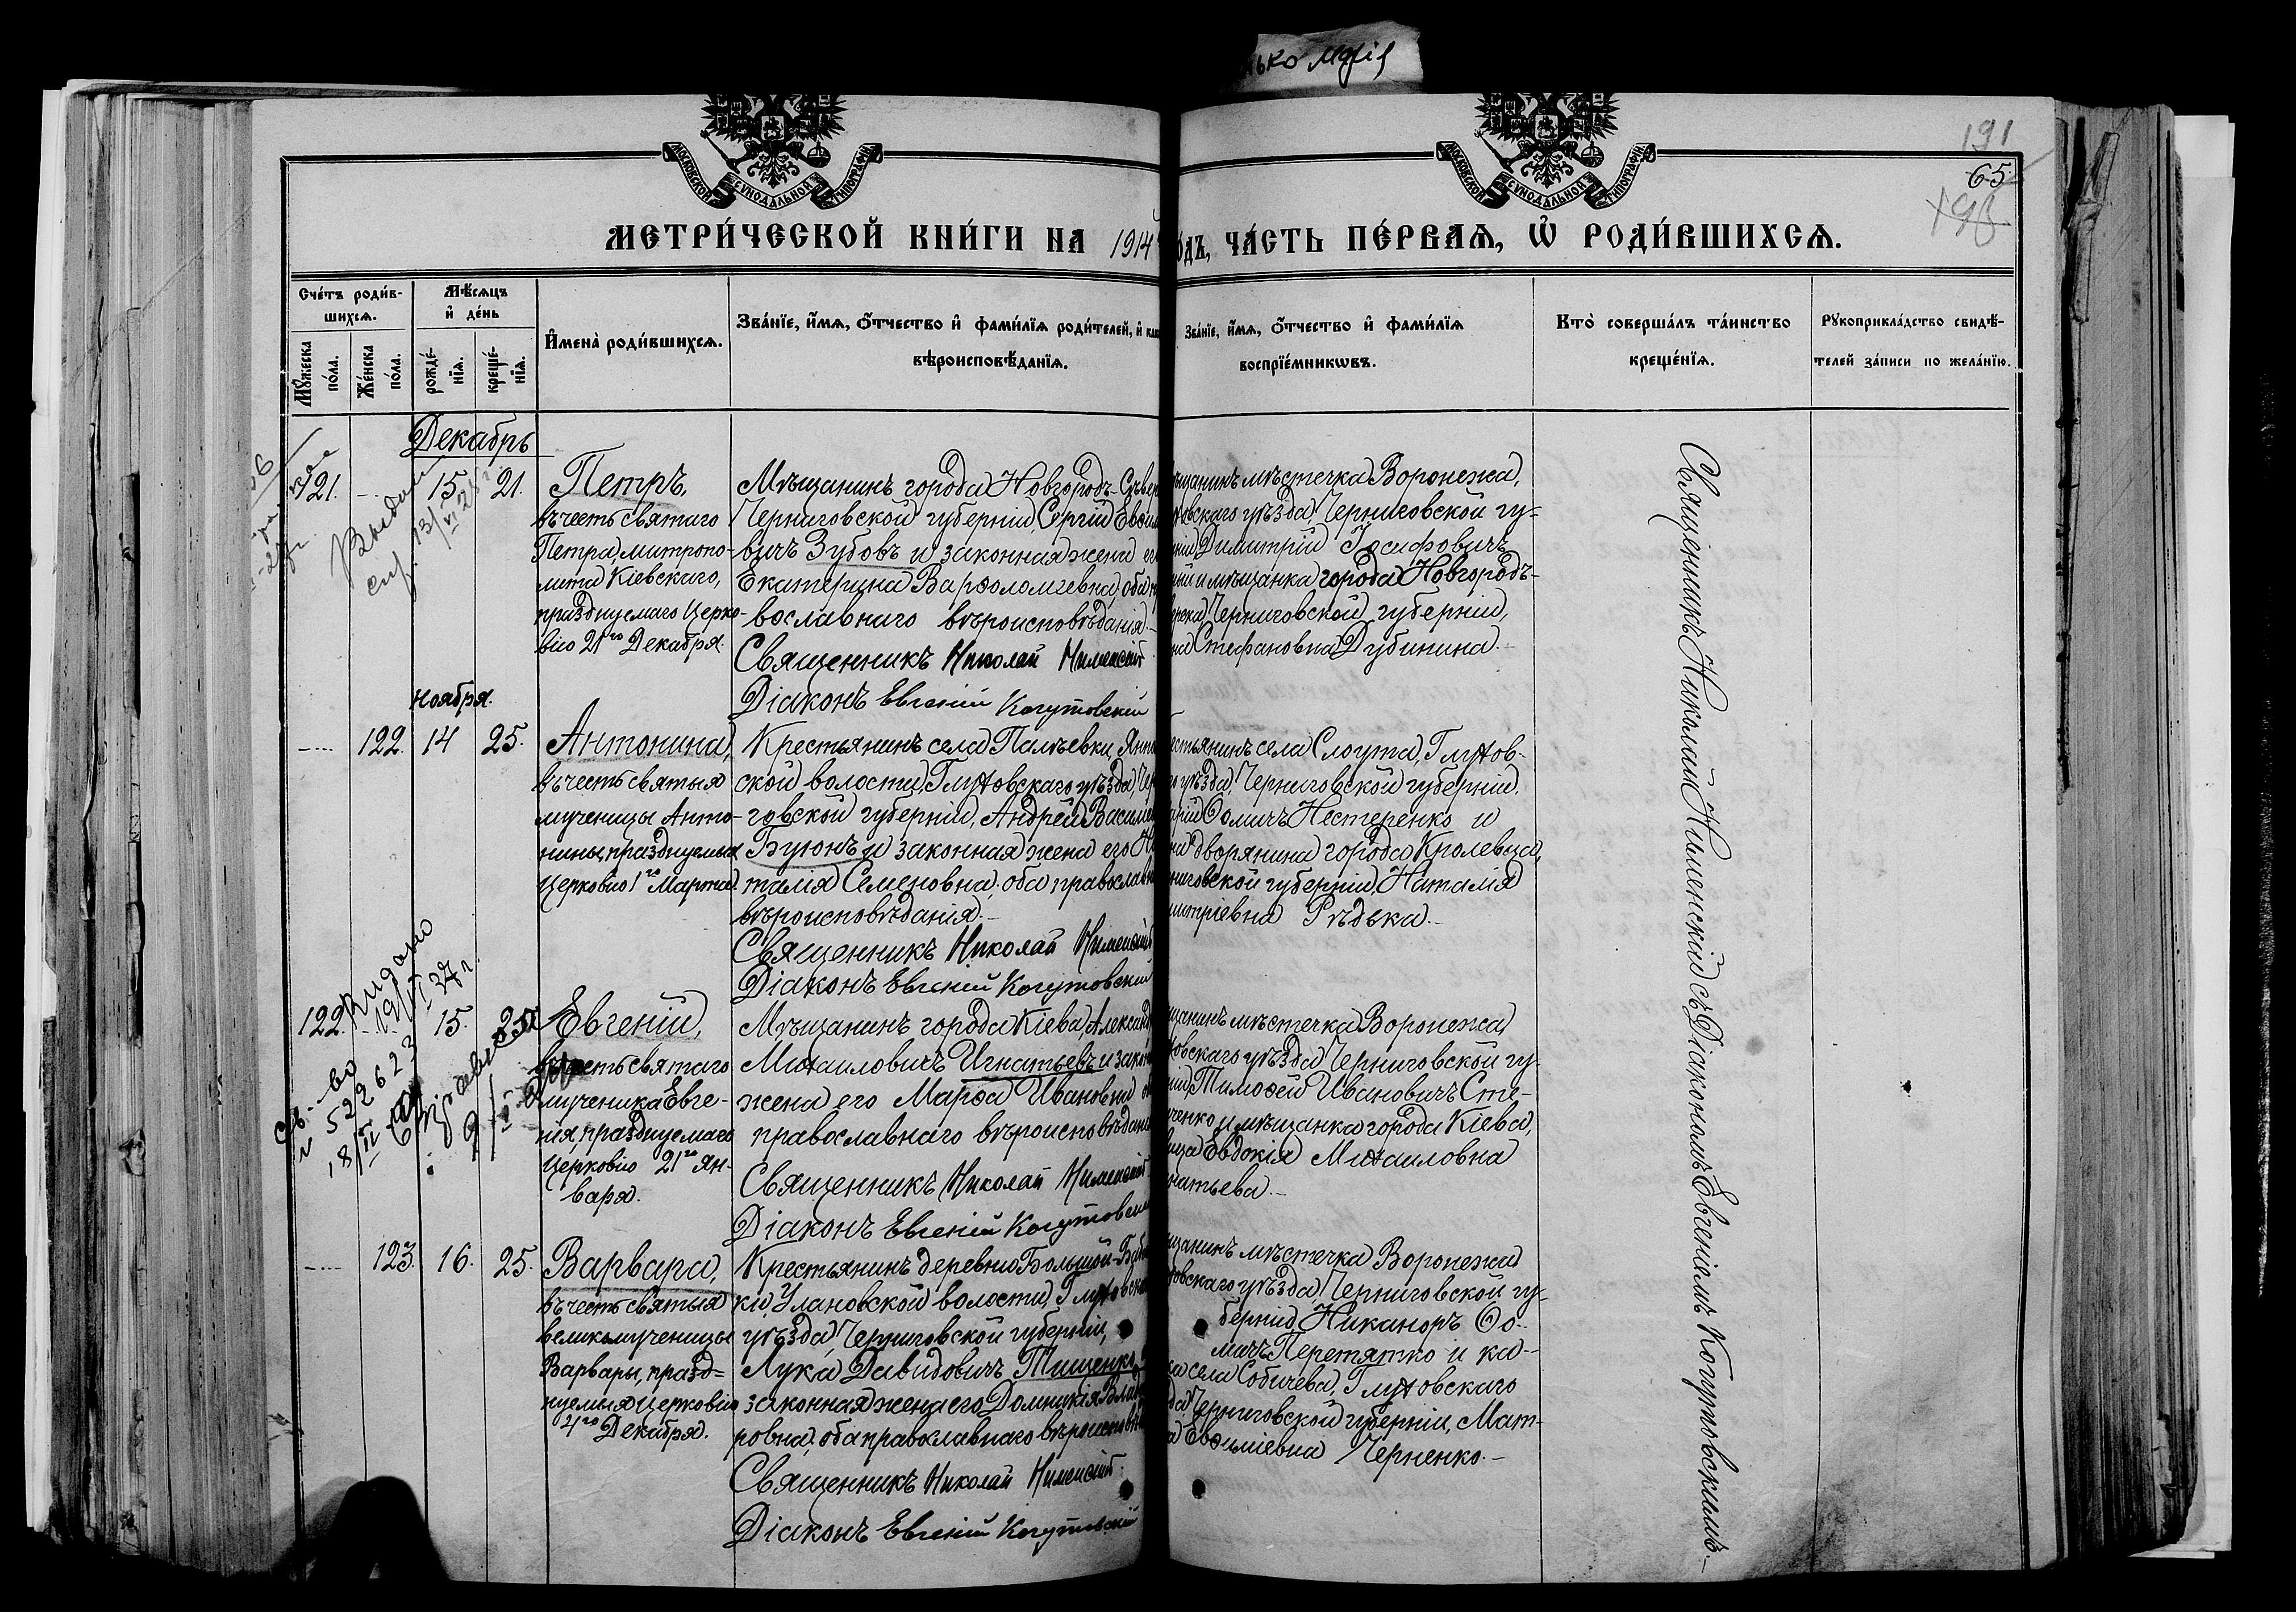 ько Марія
МОСКОВСКОЙ СѴНОДАЛЬНОЙ ТИПОГРАФІИ
МОСКОВСКОЙ СѴНОДАЛЬНОЙ ТИПОГРАФІИ
191
65
МЕТРИ́ЧЕСКОЙ КНИ́ГИ НА 1914
о́дъ, ЧА́СТЬ ПЕ́РВАѦ, Ѡ РОДИ́ВШИХСѦ.
Сче́тъ роди́в-
шихсѧ.
Мꙋ́жеска по́ла.
Же́нска по́ла.
Мѣ́сѧцъ и҆ де́нь
рожде́-
нїѧ.
креще́-
нїѧ.
И҆мена̀ роди́вшихсѧ.
Зва́нїе, и҆́мѧ, ѻ҆́тчество и҆ фами́лїѧ роди́телей, и҆ как
вѣроисповѣ́данїѧ.
Зва́нїе, и҆́мѧ, ѻ҆́тчество и҆ фами́лїѧ
воспрїе́мникѡвъ.
Кто̀ соверша́лъ та́инство
креще́нїѧ.
Рꙋкоприкла́дство свидѣ́-
телей за́писи по жела́нїю.
Декабрь
121. - 15. 21.
Петръ,
въ честь святаго
Петра, митропо-
лита Кіевскаго,
празднуемаго Церко-
вію 21го Декабря.
Мѣщанинъ города Новгородъ-Сѣвер
Черниговской губерніи, Сергій Евѳим
вичъ Зубовъ и законная жена ег
Екатерина Варѳоломеевна, оба п
вославнаго вѣроисповѣданія.
Священникъ Николай Нименскій
Діаконъ Евгеній Когутовскій
щанинъ мѣстечка Воронежа,
овскаго уѣзда, Черниговской гу-
ніи, Димитрій Іосифовичъ
ый и мѣщанка города Новгородъ-
рска, Черниговской губерніи,
на Стефановна Дубинина.
Ноября.
122. 14 25.
Антонина,
въ честь святыя
мученицы Анто-
нины, празднуемыя
Церковію 1го Марта.
Крестьянинъ села Палѣевки, Янп
ской волости, Глуховскаго уѣзда, Чер
говской губерніи, Андрей Василье
Буюнъ и законная жена его На
талія Семеновна, оба православн
вѣроисповѣданія.
Священникъ Николай Нименскій
Діаконъ Евгеній Когутовскій
естьянинъ села Слоута, Глухов-
го уѣзда, Черниговской губерніи,
рій Ѳомичъ Нестеренко и
на дворянина города Кролевца,
ниговской губерніи, Наталія
митріевна Рѣдька.
122. 15. 25.
Евгеній,
въ честь святаго
мученика Евге-
нія, празднуемаго
Церковію 21го Ян-
варя.
Мѣщанинъ города Кіева, Александ
Михаиловичъ Игнатьевъ и закон
жена его Марѳа Ивановна, об
православнаго вѣроисповѣдан
Священникъ Николай Нименскій
Діаконъ Евгеній Когутовскій
щанинъ мѣстечка Воронежа
овскаго уѣзда Черниговской гу-
ніи, Тимоѳей Ивановичъ Сте-
ченко и мѣщанка города Кіева,
ица Евдокія Михаиловна
натьева.
123. 16. 25.
Варвара,
въ честь святыя
великомученицы
Варвары, празд-
нуемыя Церковію
4го Декабря.
Крестьянинъ деревни Большой-Баб
ки Улановской волости, Глуховска
уѣзда, Черниговской губерніи,
Лука Давидовичъ Тищенко
законная жена его Домникія Влад
ровна, оба православнаго вѣроисповѣ
Священникъ Николай Нименскій
Діаконъ Евгеній Когутовскій
щанинъ мѣстечка Воронежа
овскаго уѣзда Черниговской гу-
берніи, Никаноръ Ѳо-
мичъ Перетятко и ка-
ка села Собичева, Глуховскаго
да Черниговской губерніи, Мат-
а Евѳиміевна Черненко.
Священникъ Николай Нименскій съ Діакономъ Евгеніемъ Когутовскимъ.